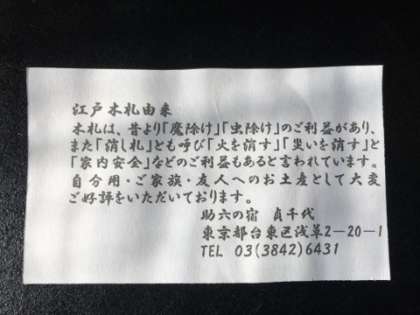 江戸木札由来
木札は、昔より「魔除け」「虫除け」のご利益があり、
また「消し札」とも呼び「火を消す」「災いを消す」と
「家内安全」などのご利益もあると言われています。
自分用・ご家族・友人へのお土産として大変
ご好評をいただいております。
助六の宿 貞千代
東京都台東区浅草2-20-1
TEL 03(3842)6431